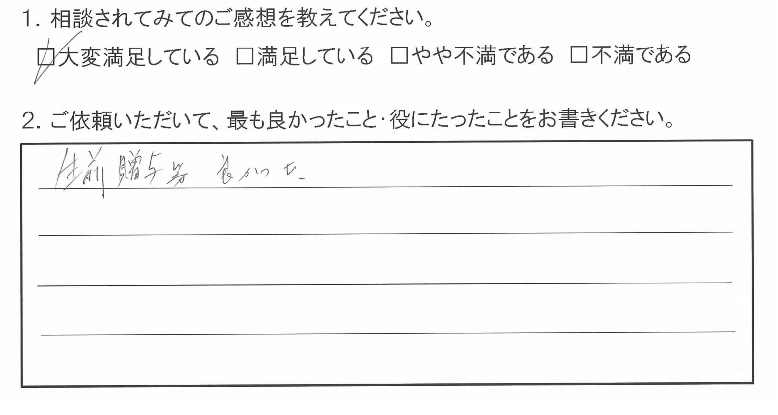 1. 相談されてみてのご感想を教えてください。
☑大変満足している □満足している □やや不満である □不満である
2. ご依頼いただいて、最も良かったこと・役にたったことをお書きください。
生前贈与等 良かった